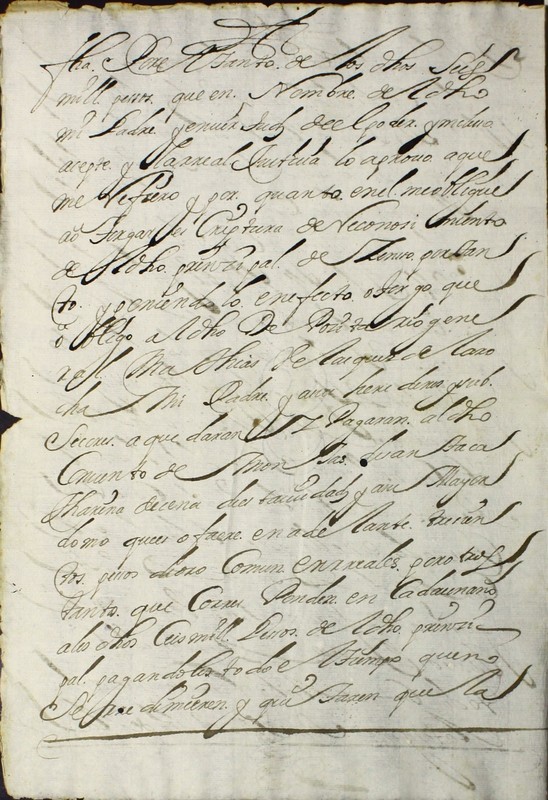 fha. Por tanto. de los dhos seis
mill pesos. que en. Nombre. de el dho
mi Padre. y en uirtud del poder.
acepte. y la rreal Justicia lo aprouo. a que
me Refiero y por. quanto. en el. me oblique
a otorgar es Criptura de Reconosi miento
de el dho. prinzi pal. de Zenso. por tan
to. y poniendo lo. en efecto. otorgo. que
o bligo a el dho De Pozi ta rio gene
ral Mathias Velasquez de la Ro
cha Mi Padre. y a sus here deros y sub
Secores. a que daran y Pagaran. al dho
Conuento de Mon Jas. de santa Ca
tharina de cena desta ciudad y a su Mayor
domo que es o fuere. en a de lante. tresien
tos. pesos de oro Comun. en rreales. por o tros
tantos. que Corres Ponden. en Cada un año
a los dhos Ceis mill. Pesos. de el dho. prinzi
pal. pagandolos todo el tiempo que no
Se rre dimieren. y que Haren que la